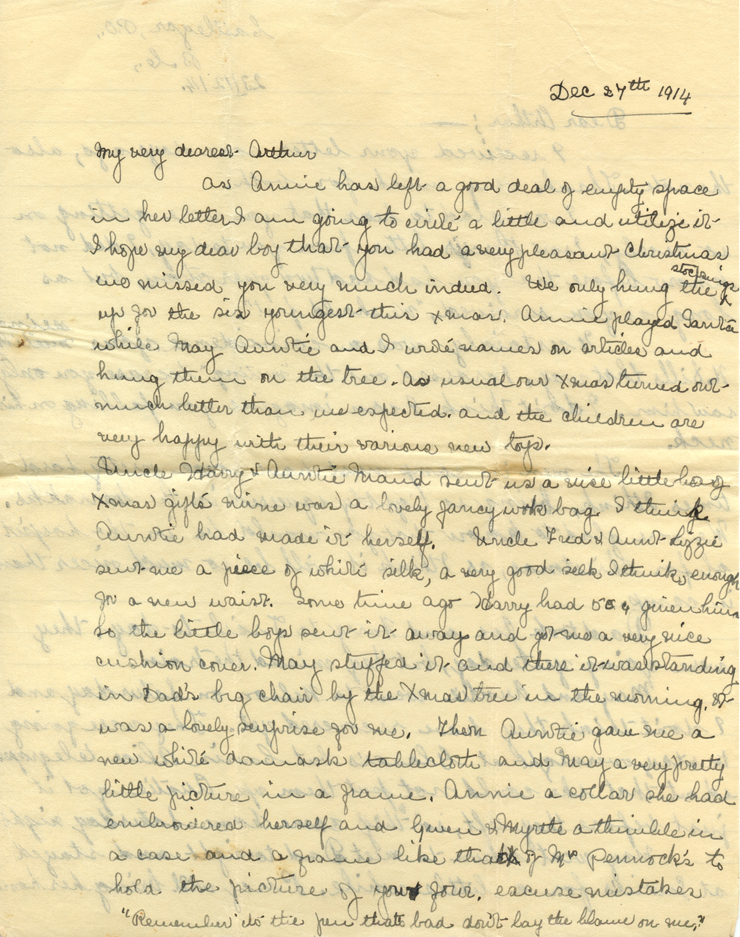 Dec 27th 1914
My very dearest Arthur
as Annie has left a good deal of empty space
in her letter I am going to write a little and utilize it
I hope my dear boy that you had a very pleasant Christmas
we missed you very much indeed. We only hung the stockings
up for the six youngest this Xmas. Annie played Santa
while May Auntie and I wrote names on articles and
hung them on the tree. As usual our Xmas turned out
much better than we expected. and the children are
very happy with their various new toys.
Uncle Harry & Auntie Maud sent us a nice little box of
Xmas gifts mine was a lovely fancy work bag I think
Auntie had made it herself. Uncle Fred & Aunt Lizzie
sent me a piece of white silk, a very good silk I think, enough
for a new waist. Some time ago Harry had 50¢ given him
so the little boys sent it away and got me a very nice
cushion cover. May stuffed it and there it was standing
in Dad's big chair by the Xmas tree in the morning. it
was a lovely surprise for me. Then Auntie gave me a
new white damask tablecloth and May a very pretty
little picture in a frame. Annie a collar she had
embroidered herself and Gwen & Myrtle a thimble in
a case and a frame like that of Mrs Pennock's to
hold the picture of you four. excuse mistakes
"Remember its the pen thats bad don't lay the blame on me."
Castlegar, P.O.,
B.C.,
Dear Arthur; —
I received your letter